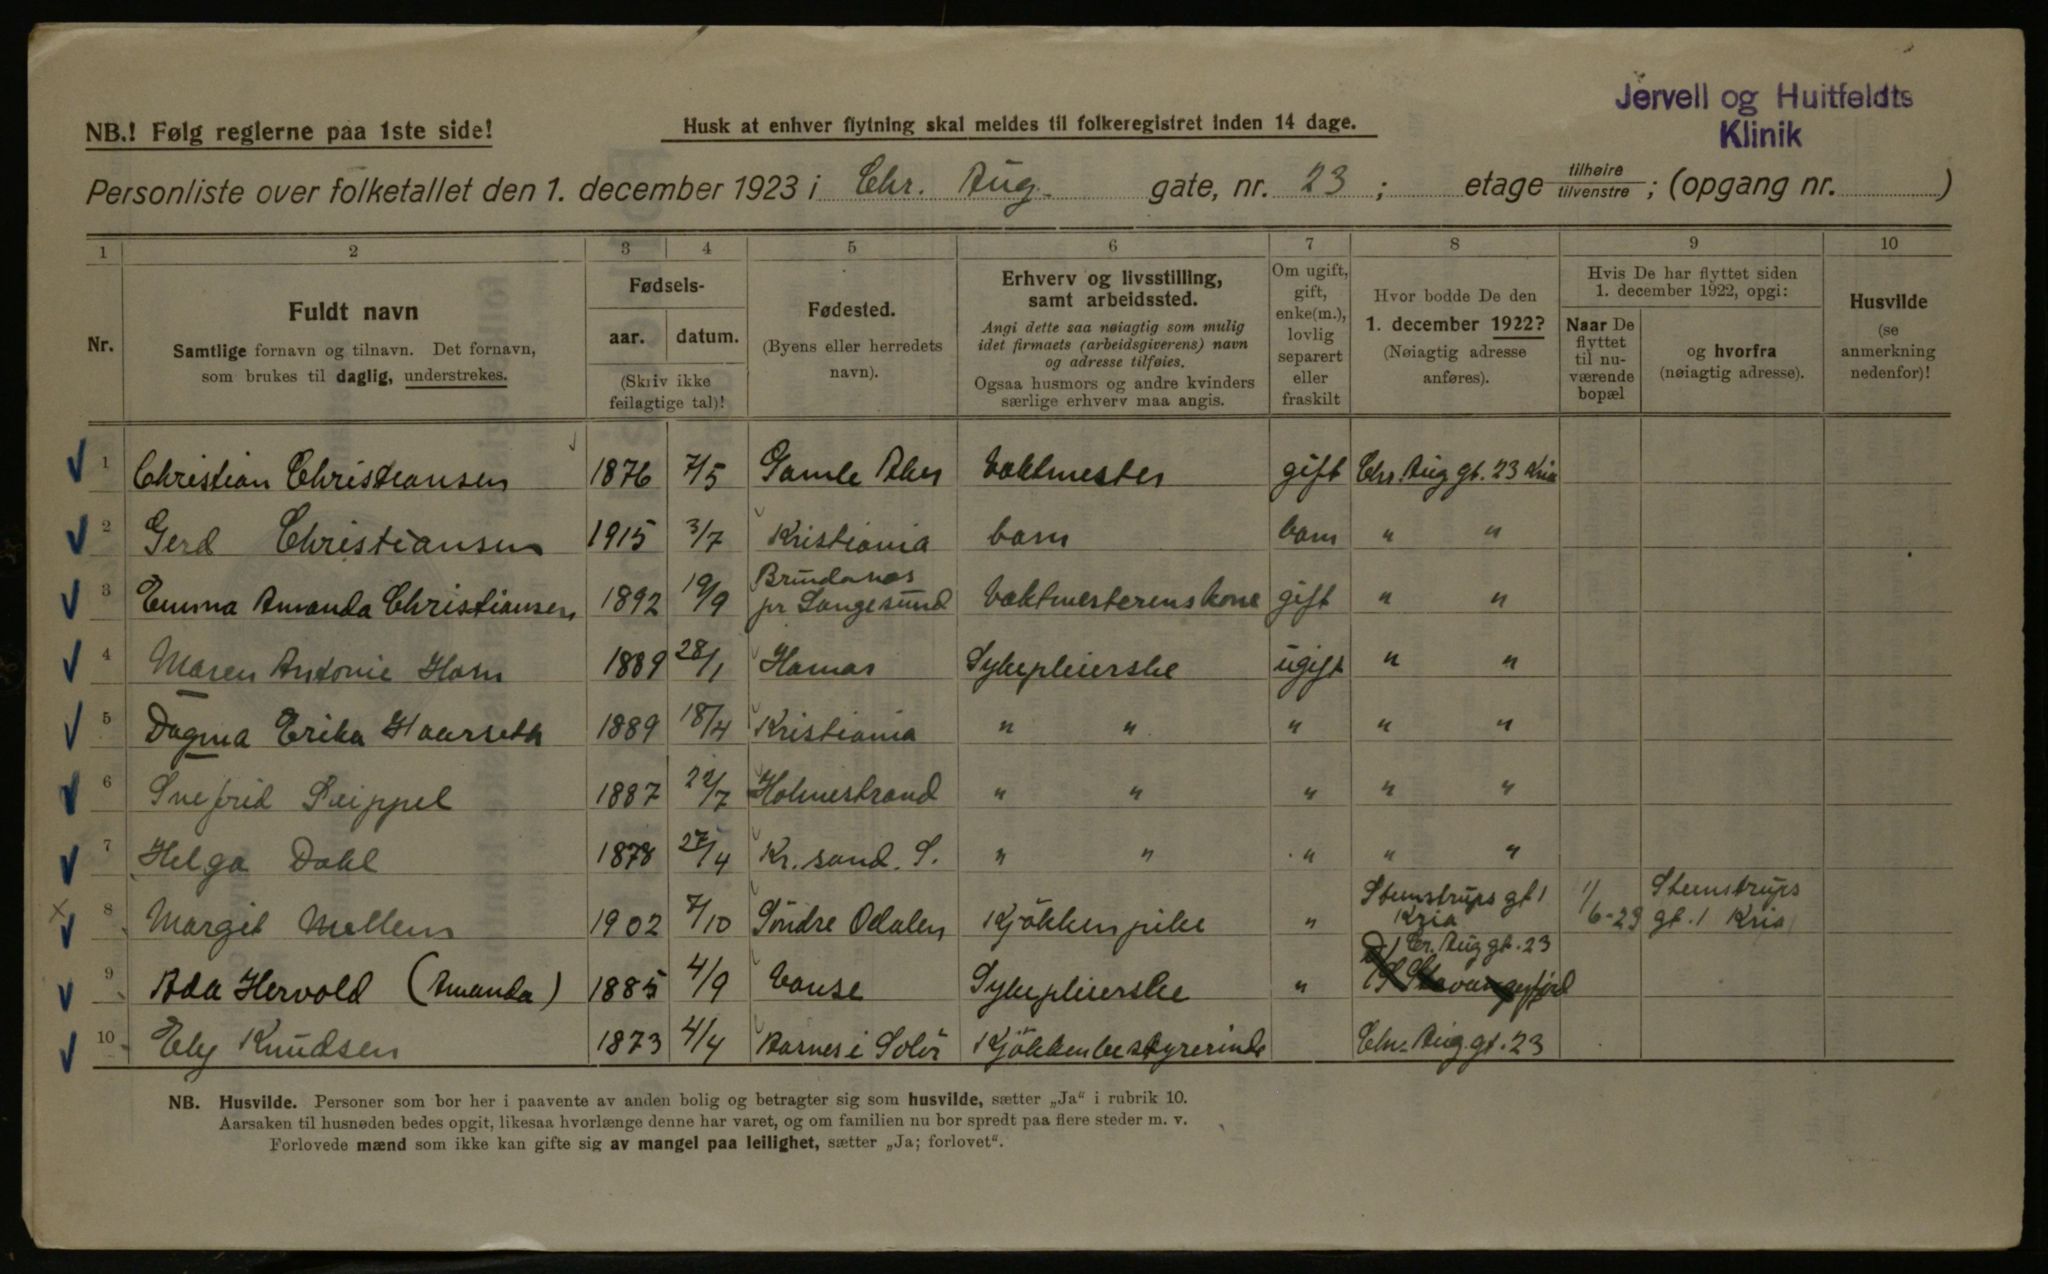 Jervell og Huitfeldts
Klinik
NB.! Følg reglerne paa 1ste side!
Husk at enhver flytning skal meldes til folkeregistret inden 14 dage.
Personliste over folketallet den 1. december 1923 i Chr. Aug. gate, nr. 23 ; etage tilhøire tilvenstre ; (opgang nr. )
1 2 3 4 5 6 7 8 9 10
Nr.
Fuldt navn
Samtlige fornavn og tilnavn. Det fornavn,
som brukes til daglig, understrekes.
Fødsels-
aar. datum.
(Skriv ikke
feilagtige tal)!
Fødested.
(Byens eller herredets
navn).
Erhverv og livsstilling,
samt arbeidssted.
Angi dette saa nøiagtig som mulig
idet firmaets (arbeidsgiverens) navn
og adresse tilføies.
Ogsaa husmors og andre kvinders
særlige erhverv maa angis.
Om ugift,
gift,
enke(m.),
lovlig
separert
eller
fraskilt
Hvor bodde De den
1. december 1922?
(Nøiagtig adresse
anføres).
Hvis De har flyttet siden
1. december 1922, opgi:
Naar De
flyttet
til nu-
værende
bopæl
og hvorfra
(nøiagtig adresse).
Husvilde
(se
anmerkning
nedenfor)!
1 Christian Christiansen 1876 7/5 Gamle Aker Vaktmester gift Chr. Aug gt. 23 Kria
2 Gerd Christiansen 1915 3/7 Kristiania barn barn " "
3 Emma Amanda Christiansen 1892 19/9 pr Langesund Vaktmesterens kone gift " "
4 Maren Antonie Horn 1889 28/1 Hamar Sykepleierske ugift " "
5 Dagma Erika Haarseth 1889 18/4 Kristiania " " " " "
6 Seippel 1887 22/7 Holmestrand " " " " "
7 Helga Dahl 1878 27/4 Kr. sand. S. " " " " "
8 Margit Mellem 1902 7/10 Söndre Odalen Kjökkenpike " Stenstrups gt 1 Kria 1/6-23 Stenstrups gt. 1 Kria
9 Ada Hervold (Amanda) 1885 4/9 Vanse Sykepleierske " Chr. Aug gt. 23
10 Ely Knudsen 1873 4/4 i Solör Kjökkenbestyrerinde Chr. Aug. gt. 23
NB. Husvilde. Personer som bor her i paavente av anden bolig og betragter sig som husvilde, sætter „Ja“ i rubrik 10.
Aarsaken til husnøden bedes opgit, likesaa hvorlænge denne har varet, og om familien nu bor spredt paa flere steder m. v.
Forlovede mænd som ikke kan gifte sig av mangel paa leilighet, sætter „Ja; forlovet“.